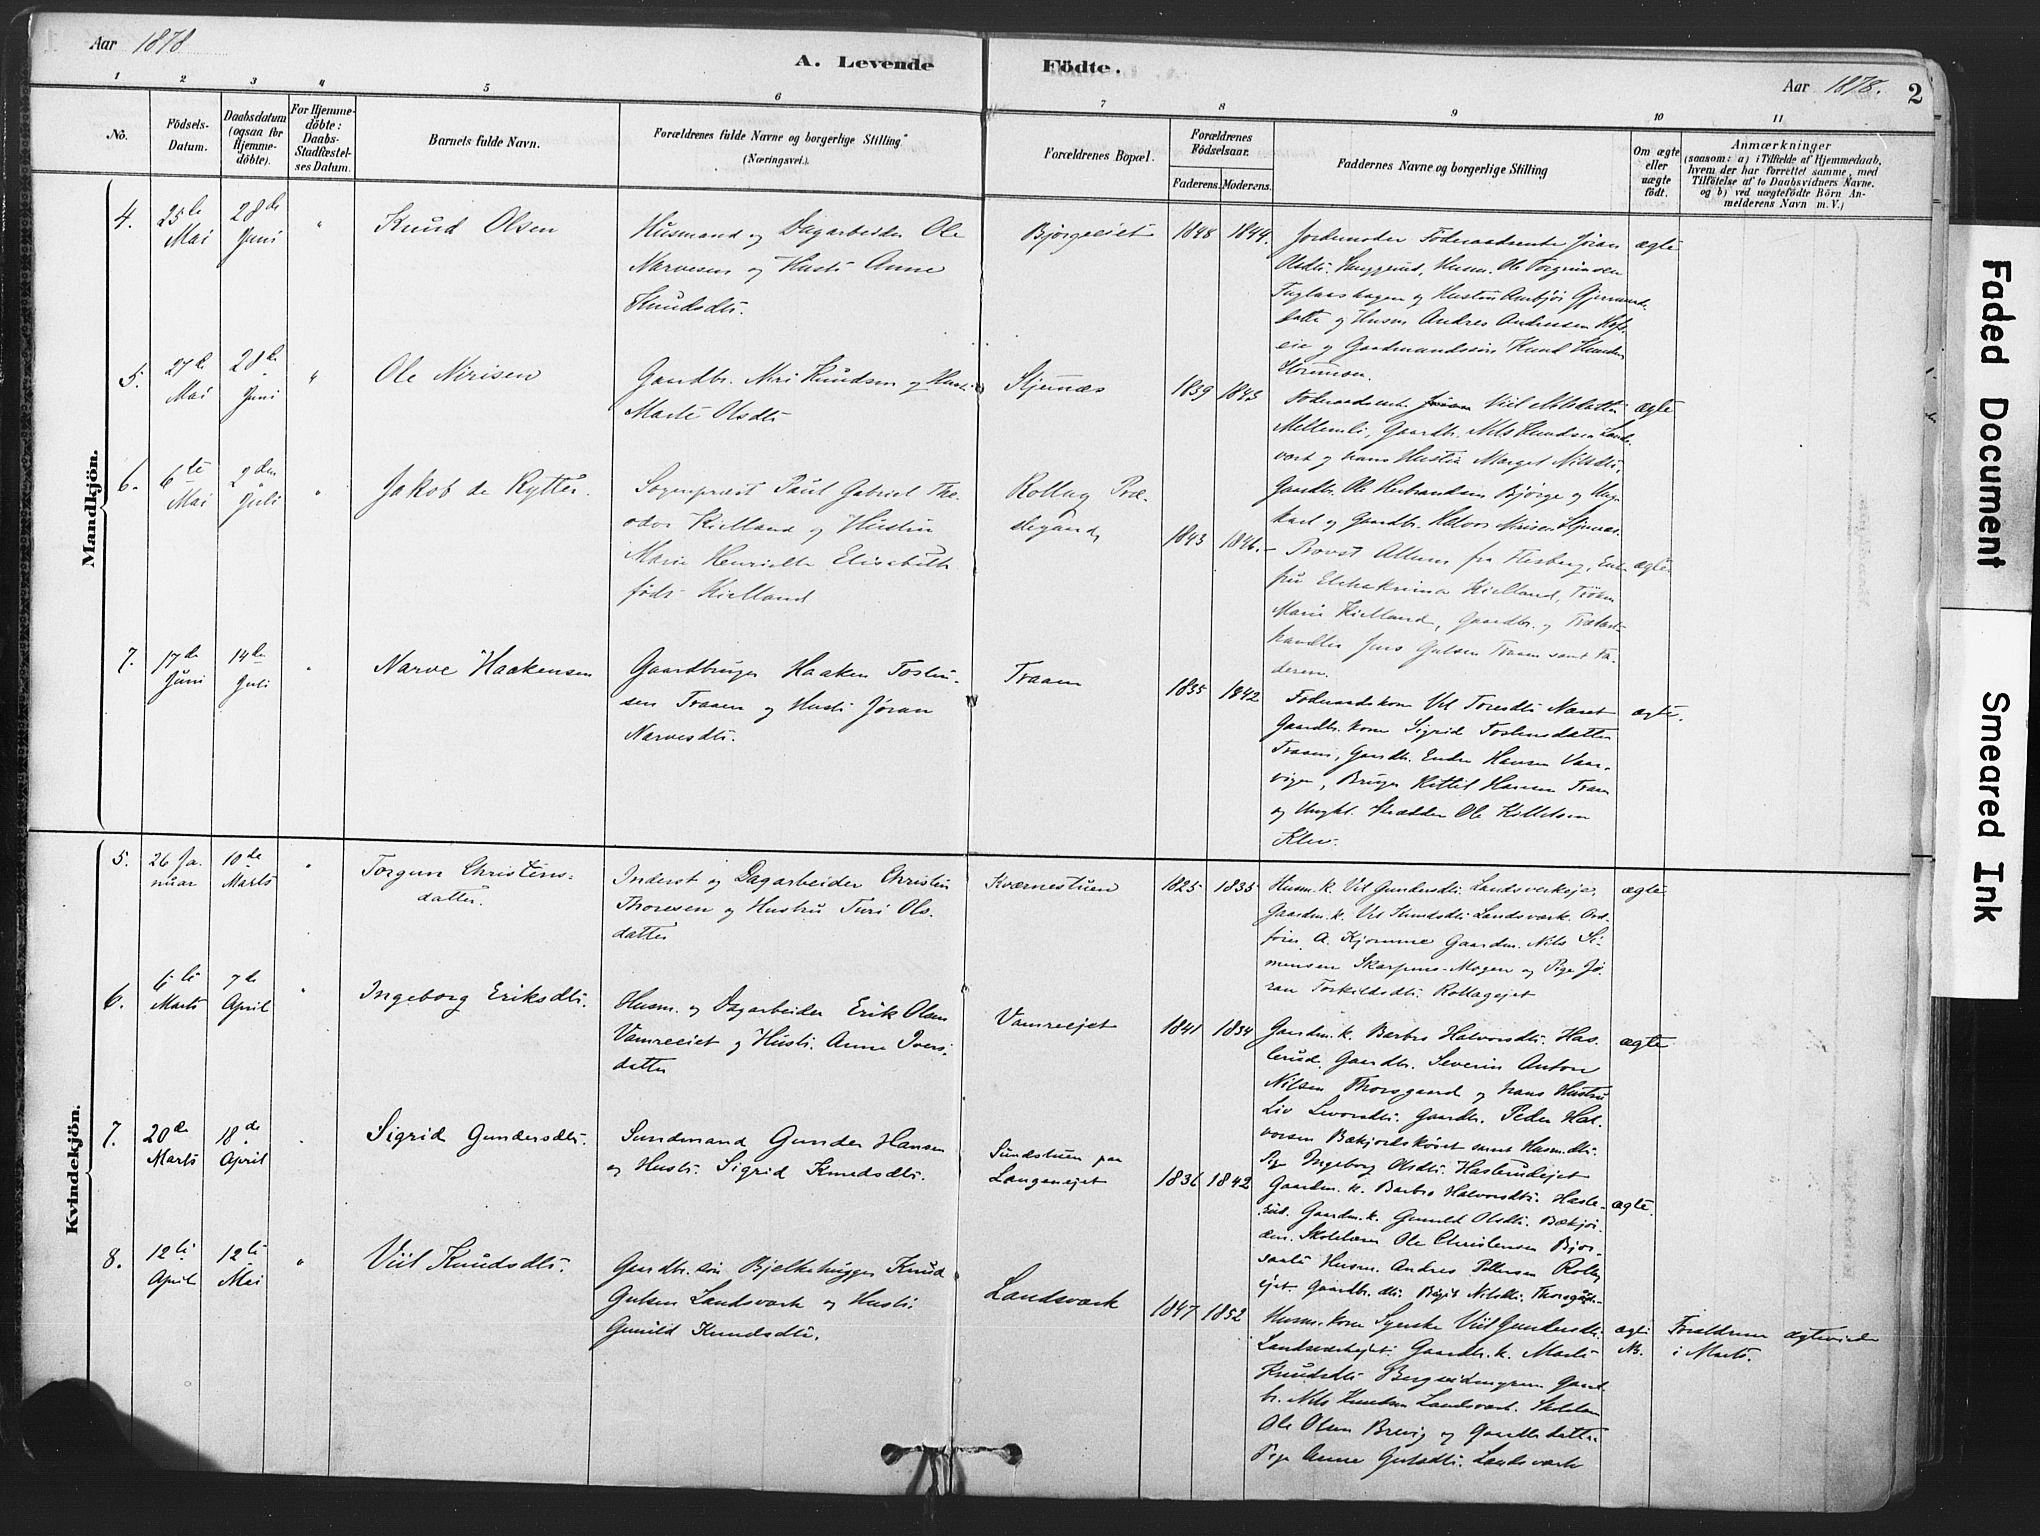 Aar 1878
A. Levende Födte.
Aar 1878. 2
1 2 3 4 5 6 7 8 9 10 11
No.
Födsels-Datum.
Daabsdatum (ogsaa for Hjemme-döbte).
For Hjemme-döbte: Daabs-Stadfæstel-ses Datum.
Barnets fulde Navn.
Forældrenes fulde Navne og borgerlige Stilling (Næringsvei).
Forældrenes Bopæl.
Forældrenes Födselsaar.
Faderens. Moderens.
Faddernes Navne og borgerlige Stilling
Om ægte eller uægte født.
Anmærkninger
(saasom: a) i Tilfælde af Hjemmedaab,
hvem der har forrettet samme, med
Tilföielse af to Daabsvidners Navne.
og b) ved uægtefödte Börn An-
melderens Navn m. V.)
Mandkjön.
4. 25de Mai 28de Juni " Knud Olsen
Husmand og Dagarbeider Ole
Narvesen og Hustr. Anne
Knudsdtr.
Bjørgeeiet 1848 1844.
Olsdtr.
Husm. Ole Torgrimsen
og Husm. Andres Andresen
ægte
5. 27de Mai 28de Juni " Ole Nirisen
Gaardbr. Niri Knudsen og Hustr.
Marte Olsdtr
Stjernæs 1839 1843
Mellemli, Gaardbr. Nils Knudsen Lands-
vark og hans Hustru Marget Nilsdtr,
Gaardbr. Ole Herbrandsen Bjørge og Ung-
karl og Gaardbr. Halvor Nirisen Stjernæs.
ægte
6. 6te Mai 2den Juli " Jakob de Rytter.
Sogneprest Paul Gabriel The-
odor Kielland og Hustru
Marie Henriette Elisabeth
født Kielland
Rollag Præ-
stegaard, 1843 1846.
Provst Allum fra Flesberg,
Kielland, Frøken
Marie Kielland, Gaardbr. og Trælast-
handler Jens Gulsen Traaen samt Fa-
deren.
ægte
7. 17de Juni 14de Juli " Narve Haakensen
Gaardbruger Haaken Tosten-
sen Traaen og Hustr. Jøran
Narvesdtr.
Traaen 1835 1842
Gaardbr. kone Sigrid Tostensdatter
Traaen, Gaardbr. Endre Hansen Vaar-
vigen, Bruger Kittil Hansen Traaen
og Ungk. Skrædder Ole Kittelsen
Klev.
ægte.
Kvindekjön.
5. 26 Ja-nuar 10de Marts " Torgun Christens-
datter.
Inderst og Dagarbeider Christen
Thoresen og Hustru Turi Ols-
datter
Kværnestuen 1825 1835
Husm. k. Vil Gundersdtr. Landsverkeje,
Gaardm. k. Vil Knudsdtr. Landsværk. Ord-
fører A. Kjomme Gaardm. Nils Si-
mensen Skarpmo-Mogen og Pige Jø-
ran Torkildsdtr. Rollagejet
ægte
6. 6te Marts 7de April " Ingeborg Eriksdtr.
Husm. og Dagarbeider Erik Olsen
Vamreeiet og Hustr. Anne Ivers-
datter
Vamreejet 1841 1834
Gaardm. k. Barbro Halvorsdtr. Has-
lerud. Gaardbr. Severin Anton
Nilsen Thorsgaard og hans Hustru
Liv Levorsdtr. Gaardbr. Peder Hal-
vorsen samt Husm.dtr.
Pige Ingeborg Olsdtr. Haslerudejet
ægte
7. 20de Marts 18de April " Sigrid Gundersdtr.
Sundmand Gunder Hansen
og Hustr. Sigrid Knudsdtr.
Sundstuen paa
Langeejet 1836 1842
Gaardm. k. Barbro Halvorsdtr. Hasle-
rud. Gaardm. k. Gunild Olsdtr. Bækjor-
den. Skolelærer Ole Christensen Bjør-
Husm. Andres Pettersen Rollag
ejet. Gaardbr. dtr. Birgit Nilsdtr. Thorsgård
ægte.
8. 12te April 12te Mai " Viil Knudsdtr.
Gaardbr. søn Bjelkehugger Knud
Gulsen Landsvark og Hustr.
Gunild Knudsdtr.
Landsvark 1847 1852
Husm. kone Synneve Viil Gundersdtr.
Landsvarkejet. Gaardbr. k. Marte
Knudsdtr
br. Nils Knudsen Landsvark.
Ole Olsen Brevig og Gaardbr. datter
Pige Anne Gulsdtr. Landsvark
ægte NB.
Forældrene ægteviede
i Marts.
Faded Document
Smeared Ink